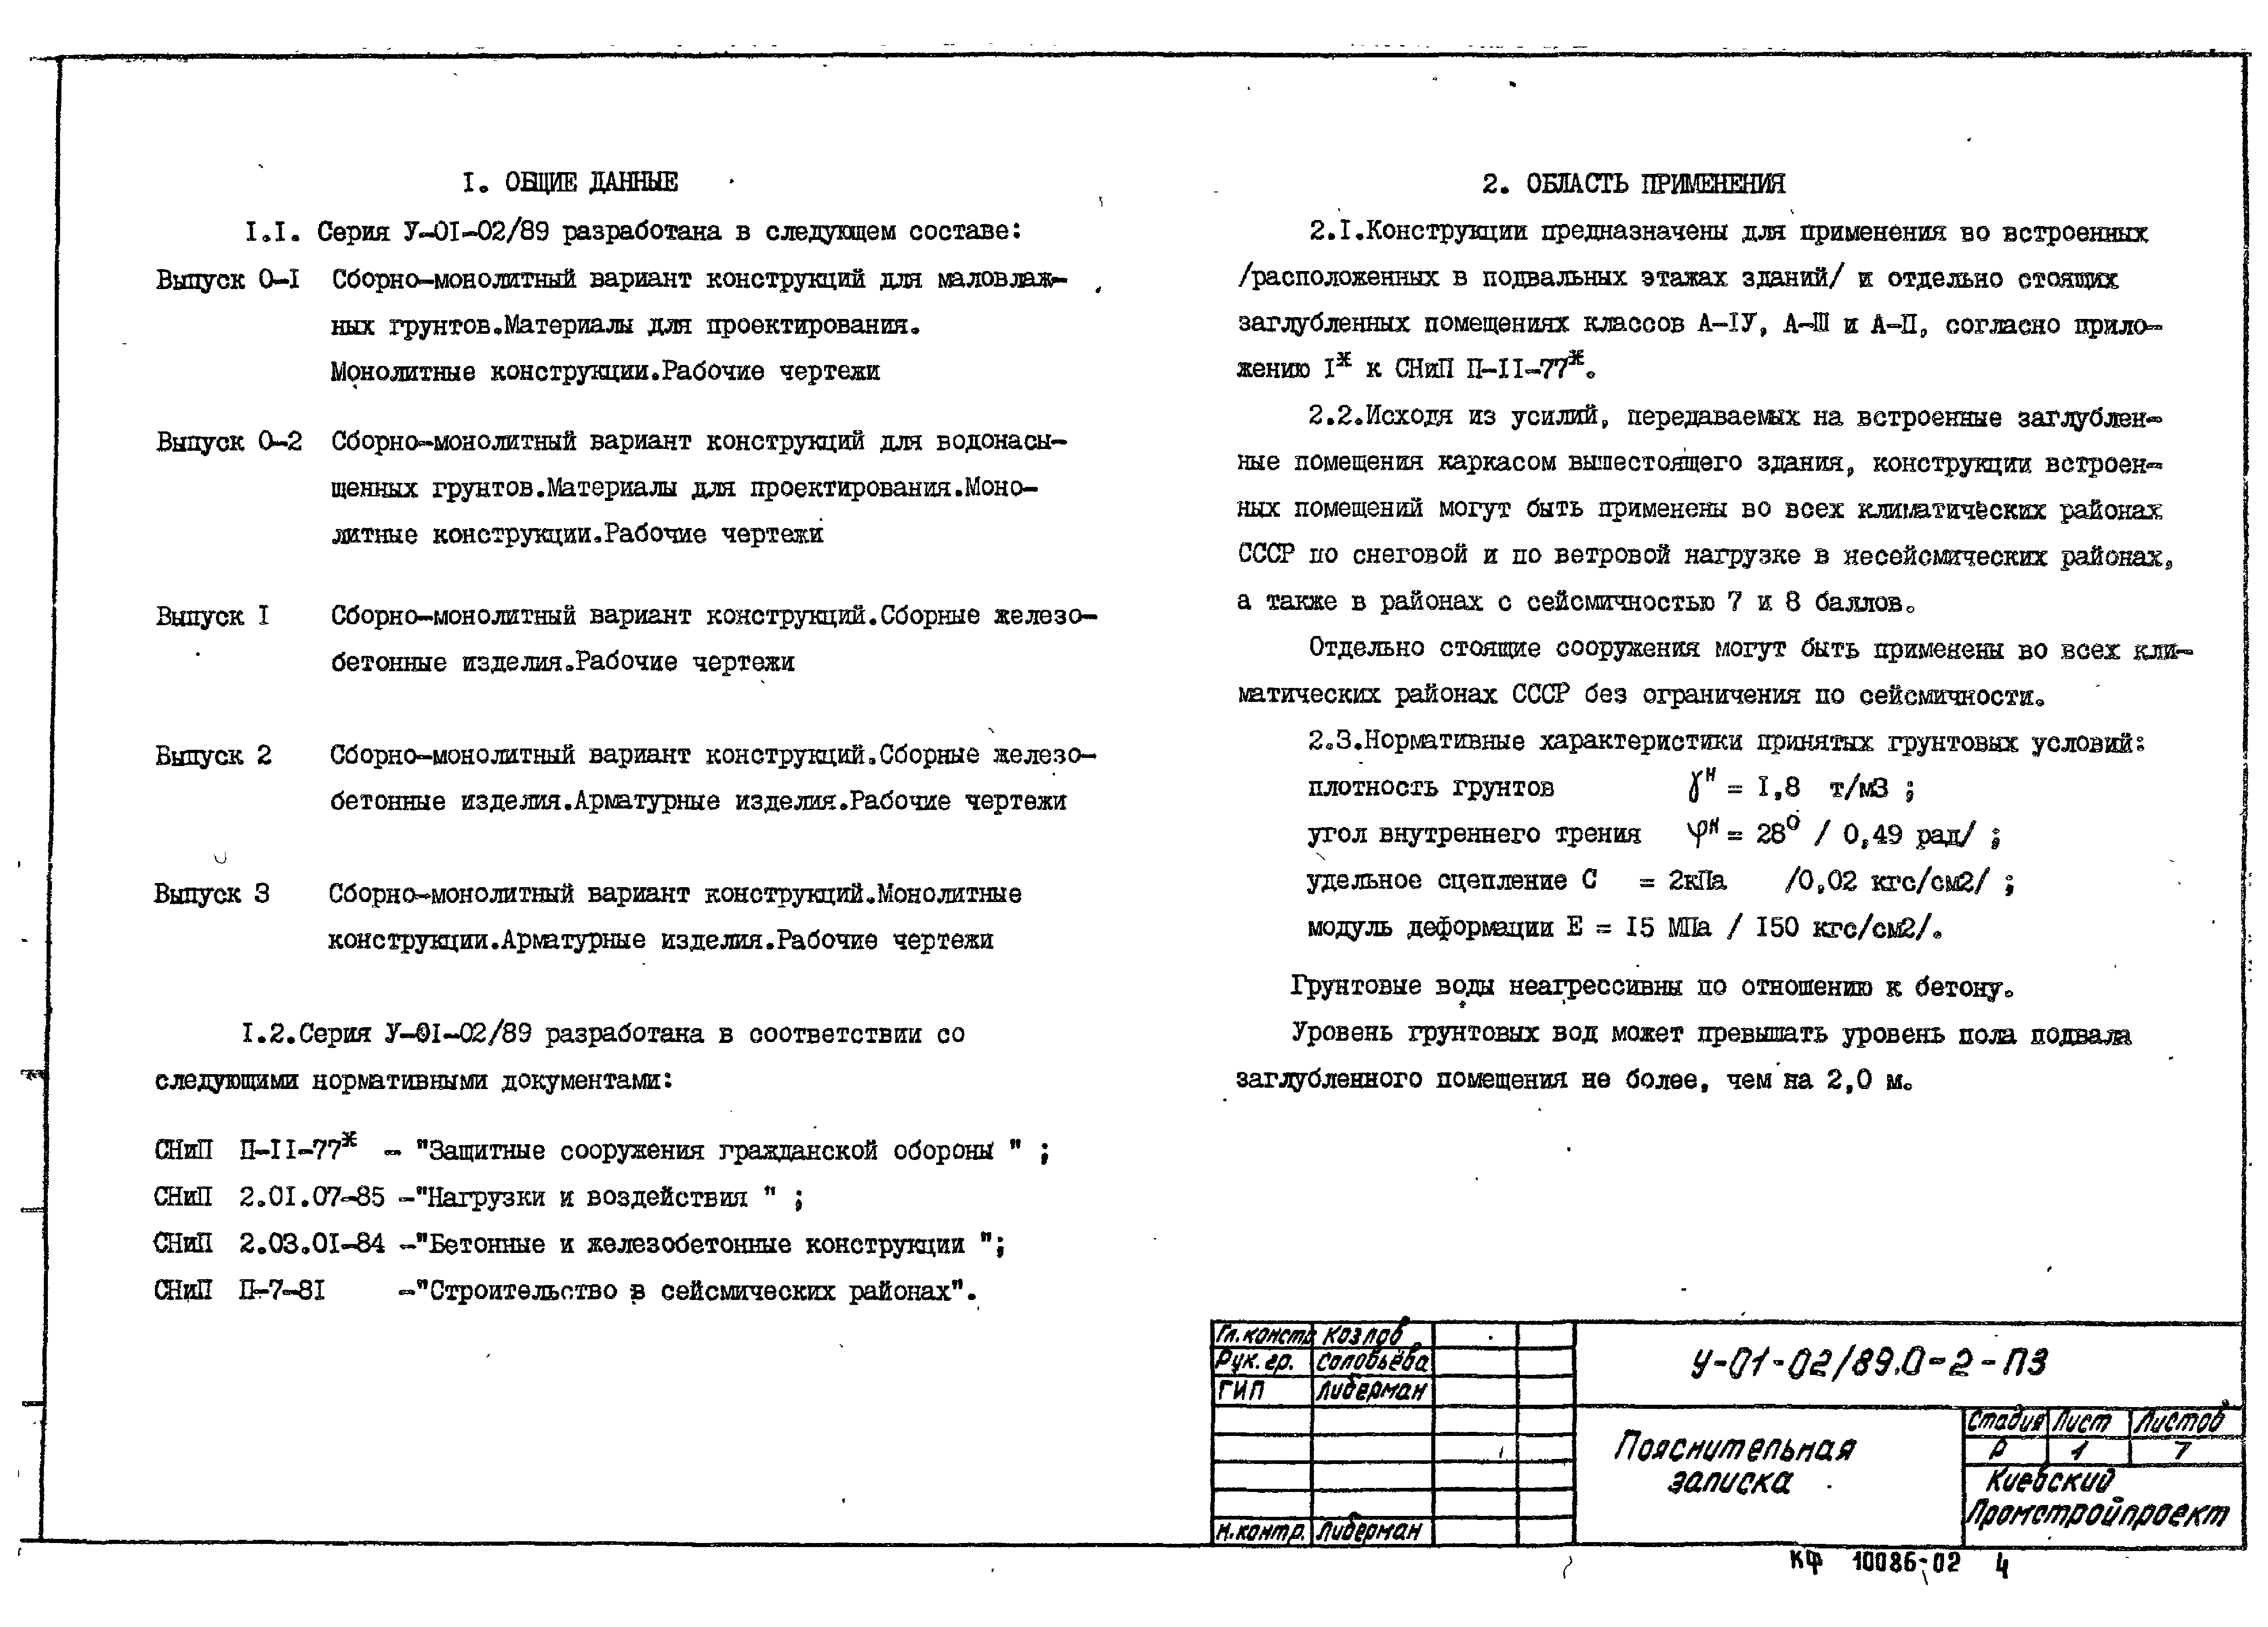 I. ОБЩИЕ ДАННЫЕ
I.I. Серия У-0I-02/89 разработана в следующем составе:
Выпуск 0-I Сборно-монолитный вариант конструкций для маловлаж-
ных грунтов.Материалы для проектирования.
Монолитные конструкции.Рабочие чертежи
Выпуск 0-2 Сборно-монолитный вариант конструкций для водонасы-
щенных грунтов.Материалы для проектирования.Моно-
литные конструкции.Рабочие чертежи
Выпуск I Сборно-монолитный вариант конструкций.Сборные железо-
бетонные изделия.Рабочие чертежи
Выпуск 2 Сборно-монолитный вариант конструкций.Сборные железо-
бетонные изделия.Арматурные изделия.Рабочие чертежи
Выпуск 3 Сборно-монолитный вариант конструкций.Монолитные
конструкции.Арматурные изделия.Рабочие чертежи
I.2.Серия У-0I-02/89 разработана в соответствии со
следующими нормативными документами:
СНиП П-II-77ж - "Защитные сооружения гражданской обороны " ;
СНиП 2.0I.07-85 -"Нагрузки и воздействия " ;
СНиП 2.03.0I-84 -"Бетонные и железобетонные конструкции ";
СНиП П-7-8I -"Строительство в сейсмических районах".
2. ОБЛАСТЬ ПРИМЕНЕНИЯ
2.I.Конструкции предназначены для применения во встроенных
/расположенных в подвальных этажах зданий/ и отдельно стоящих
заглубленных помещениях классов А-IУ, А-Ш и А-П, согласно прило-
жению Iж к СНиП П-II-77ж.
2.2.Исходя из усилий, передаваемых на встроенные заглублен-
ные помещения каркасом вышестоящего здания, конструкции встроен-
ных помещений могут быть применены во всех климатических районах
СССР по снеговой и по ветровой нагрузке в несейсмических районах,
а также в районах с сейсмичностью 7 и 8 баллов.
Отдельно стоящие сооружения могут быть применены во всех кли-
матических районах СССР без ограничения по сейсмичности.
2.3.Нормативные характеристики принятых грунтовых условий:
плотность грунтов γн = I,8 т/м3 ;
угол внутреннего трения φн = 28° / 0,49 рад/ ;
удельное сцепление С = 2кПа /0,02 кгс/см2/ ;
модуль деформации Е = I5 МПа / I50 кгс/см2/.
Грунтовые воды неагрессивны по отношению к бетону.
Уровень грунтовых вод может превышать уровень пола подвала
заглубленного помещения не более, чем на 2,0 м.
Гл.констр Козлов
Рук.гр. Соловьёва
ГИП Либерман
Н.контр. Либерман
У-01-02/89.0-2-ПЗ
Пояснительная
записка
Стадия Лист Листов
Р 1 7
Киевский
Промстройпроект
КФ 10086-02 4